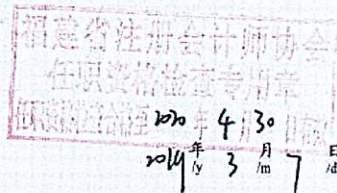 福建省注册会计师协会
任职资格检查专用章
2020 4 30
2019年 3月 7日
/y /m /d